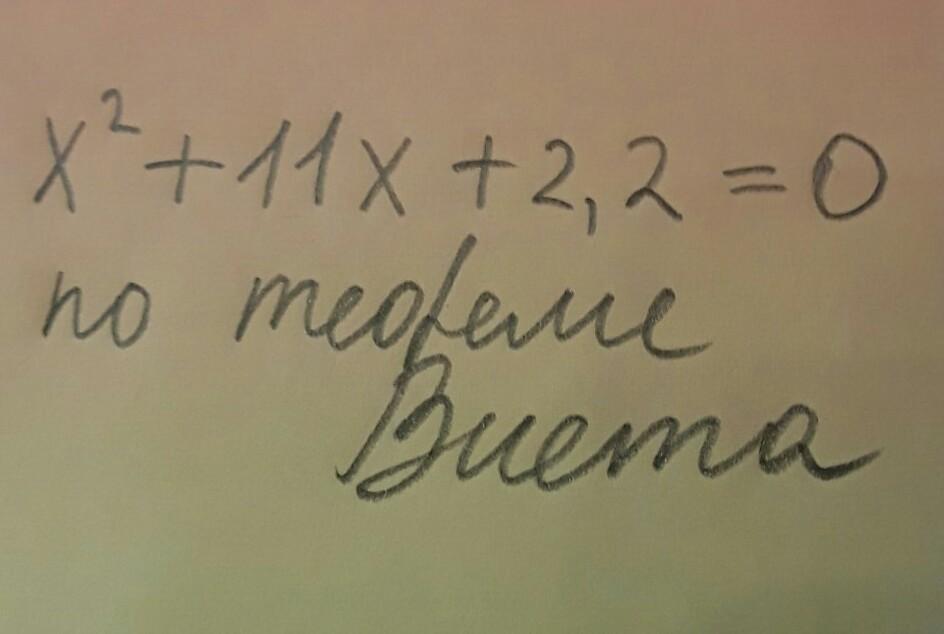 x² + 11x + 2,2 = 0
по теореме
Виета